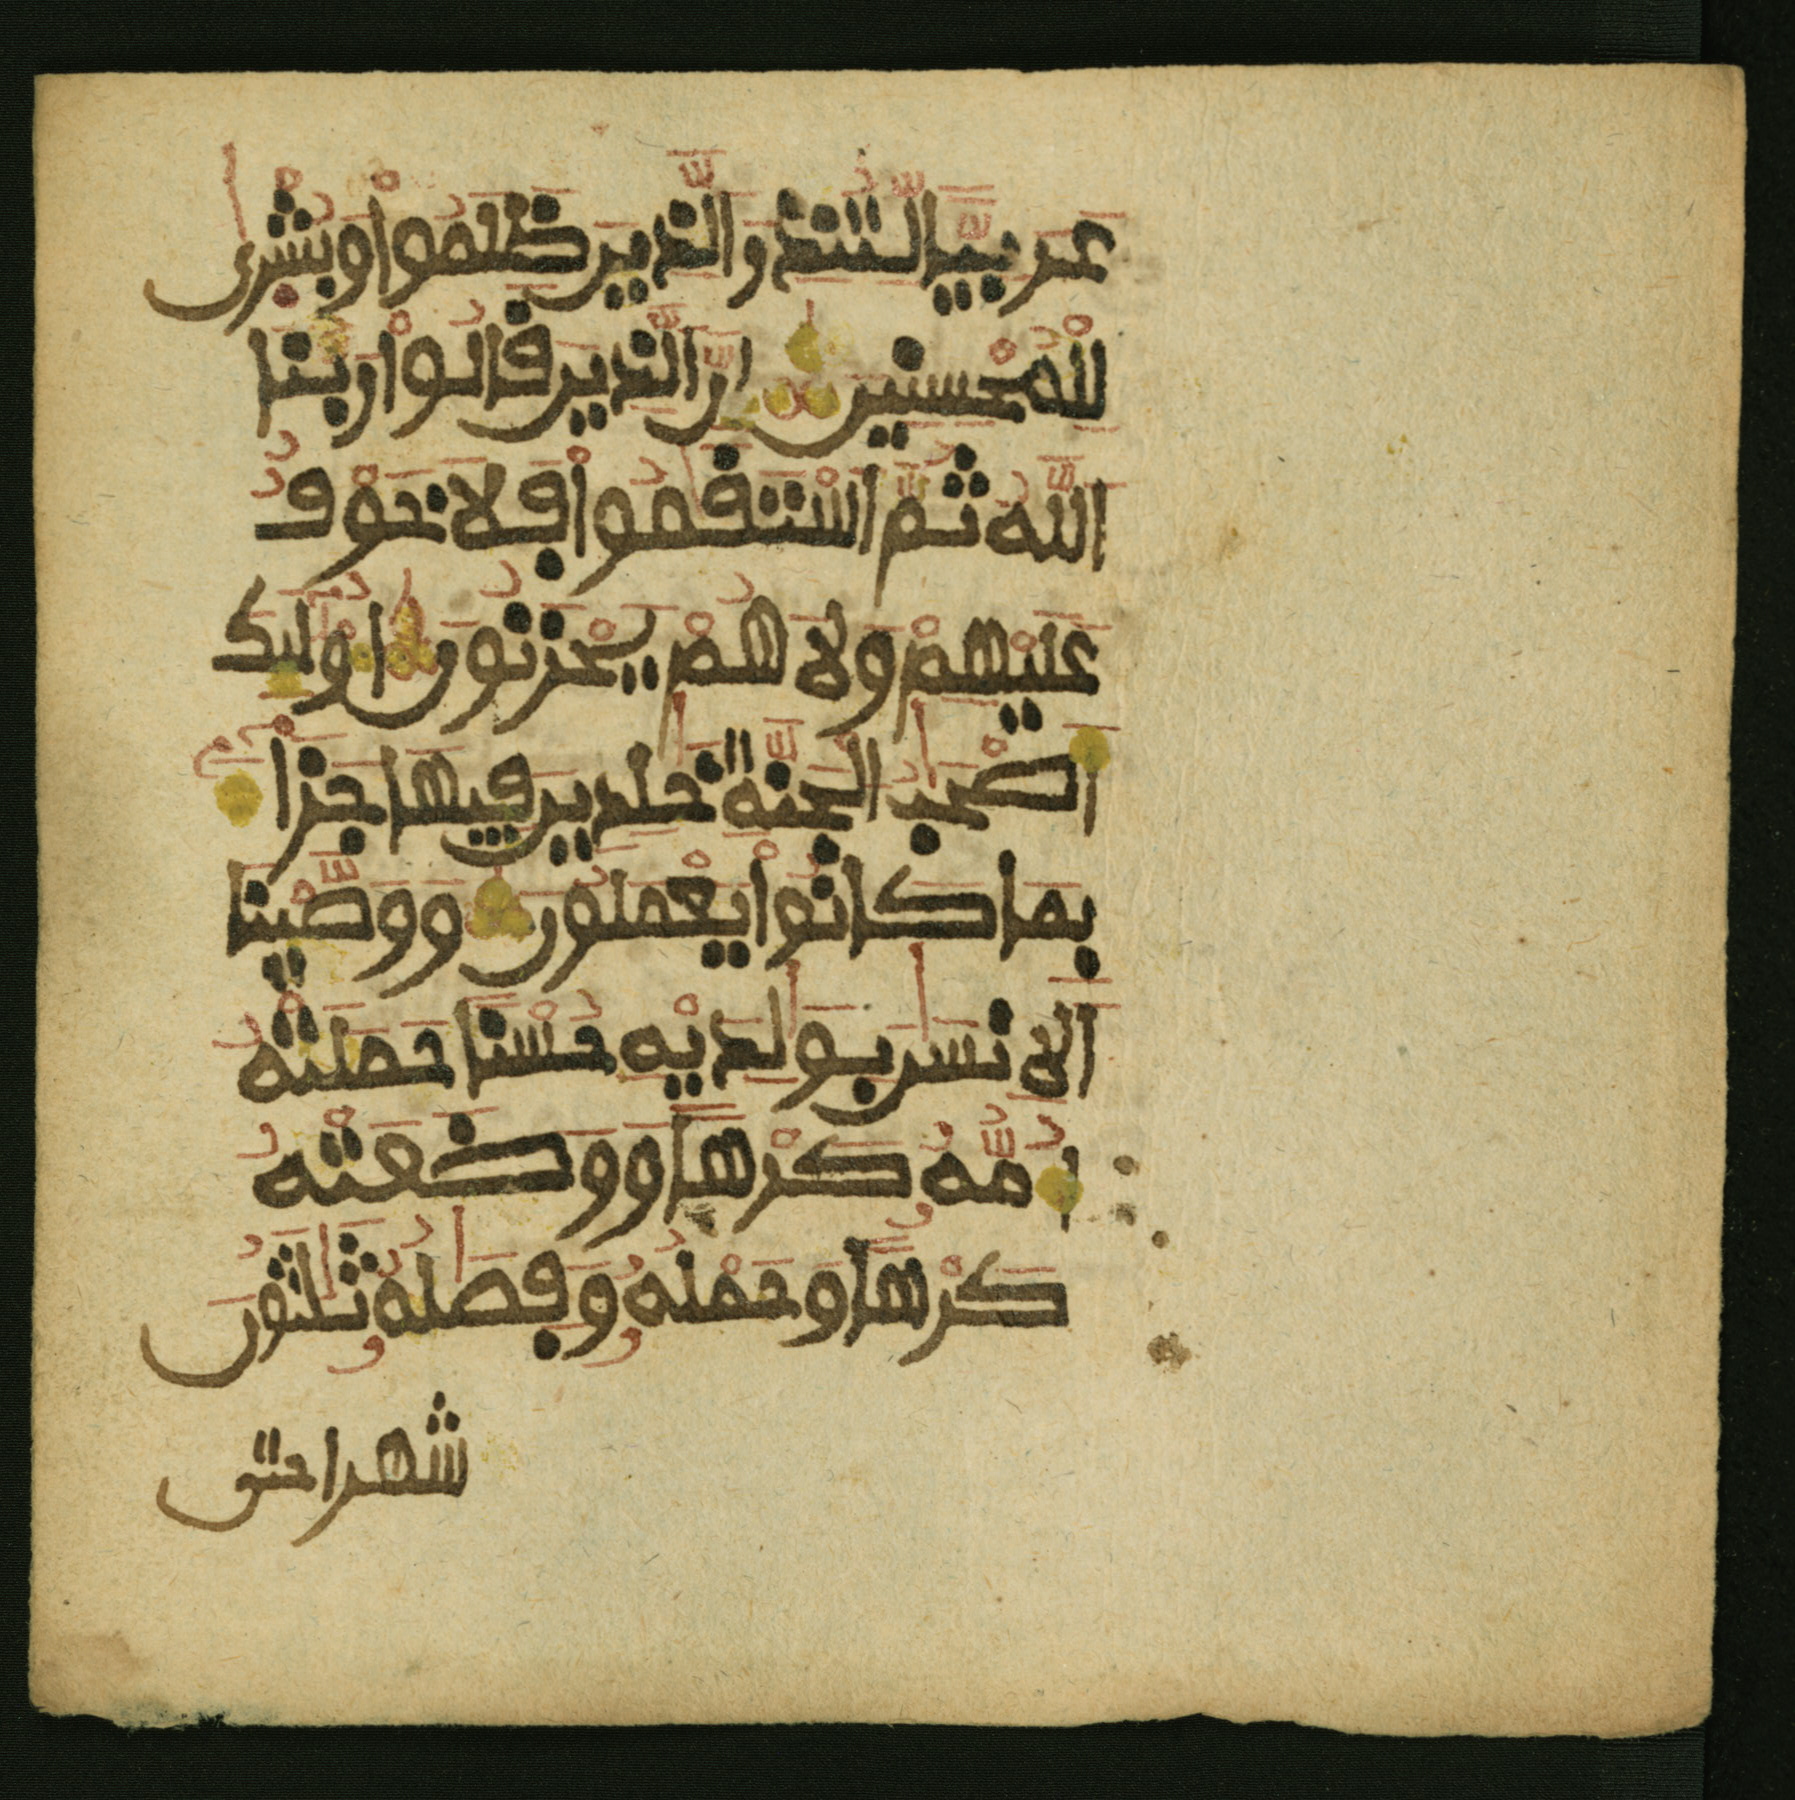 عَرَبِيّٗا لِّتُنذِرَ ٱلَّذِينَ ظَلَمُواْ وَبُشْرىٰ
لِلْمُحْسِنِينَ إِنَّ ٱلَّذِينَ قَالُواْ رَبُّنَا
ٱللَّهُ ثُمَّ ٱسْتَقَٰمُواْ فَلَا خَوْفٌ
عَلَيْهِمْ وَلَا هُمْ يَحْزَنُونَ أُوْلَٰٓئِكَ
أَصْحَٰبُ ٱلْجَنَّةِ خَٰلِدِينَ فِيهَا جَزَآءَۢ
بِمَا كَانُواْ يَعْمَلُونَ وَوَصَّيْنَا
ٱلْإِنسَٰنَ بِوَٰلِدَيْهِ حُسْناً حَمَلَتْهُ
أُمُّهُۥ كَرْهاً وَوَضَعَتْهُ
كَرْهاً وَحَمْلُهُۥ وَفِصَٰلُهُۥ ثَلَٰثُونَ
شهرا حتى